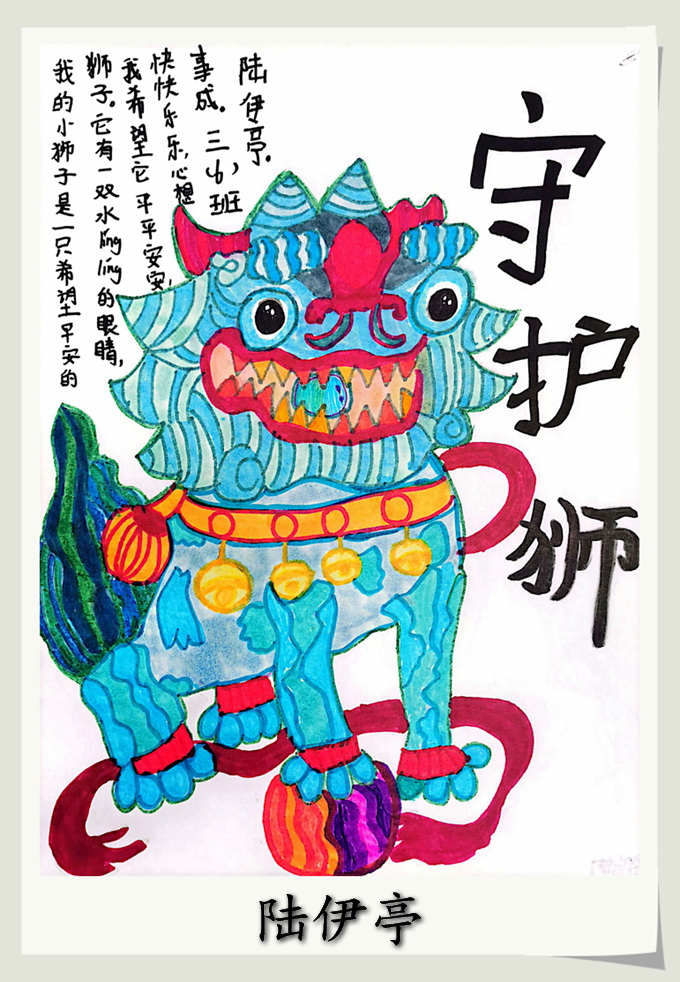 守护狮
我的小狮子是一只希望早安的
狮子。它有一双水líng líng的眼睛,
我希望它平平安安,
快快乐乐,心想
事成。三(6)班
陆伊亭.
陆伊亭